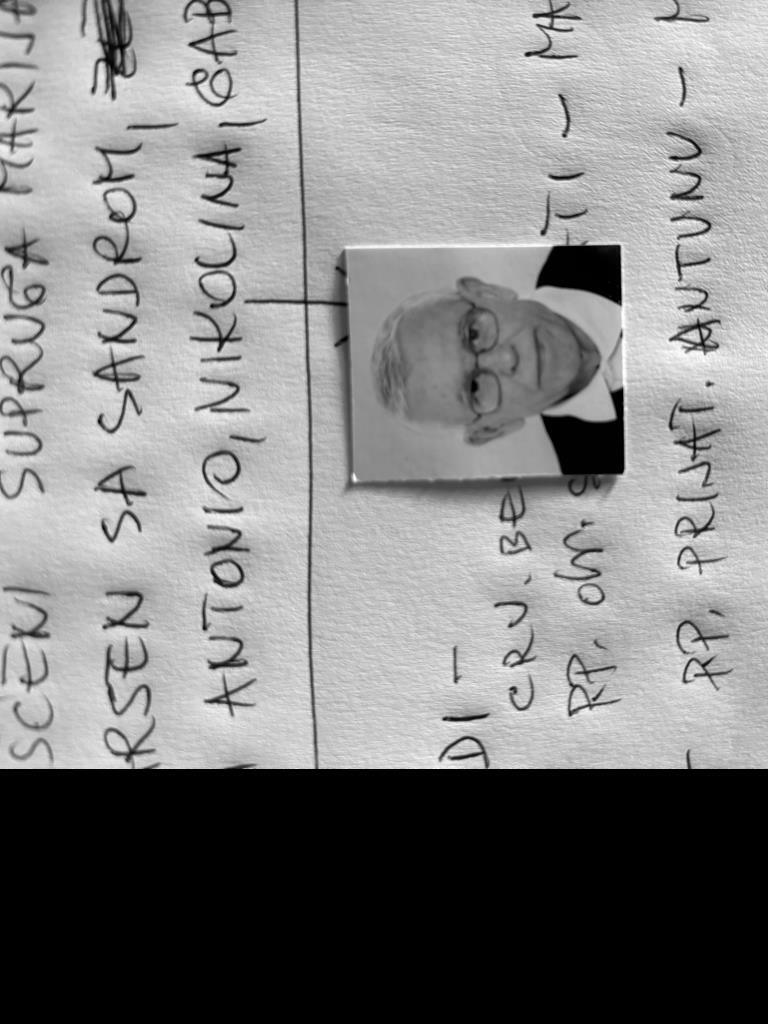 SCENI SUPRUGA MARIJA
RSEN SA SANDROM,
ANTONIO, NIKOLINA, GAB
DI -
CRV. BE
RP. obr. S TI - MA
- RP. PRIVAT. ANTUNU - M